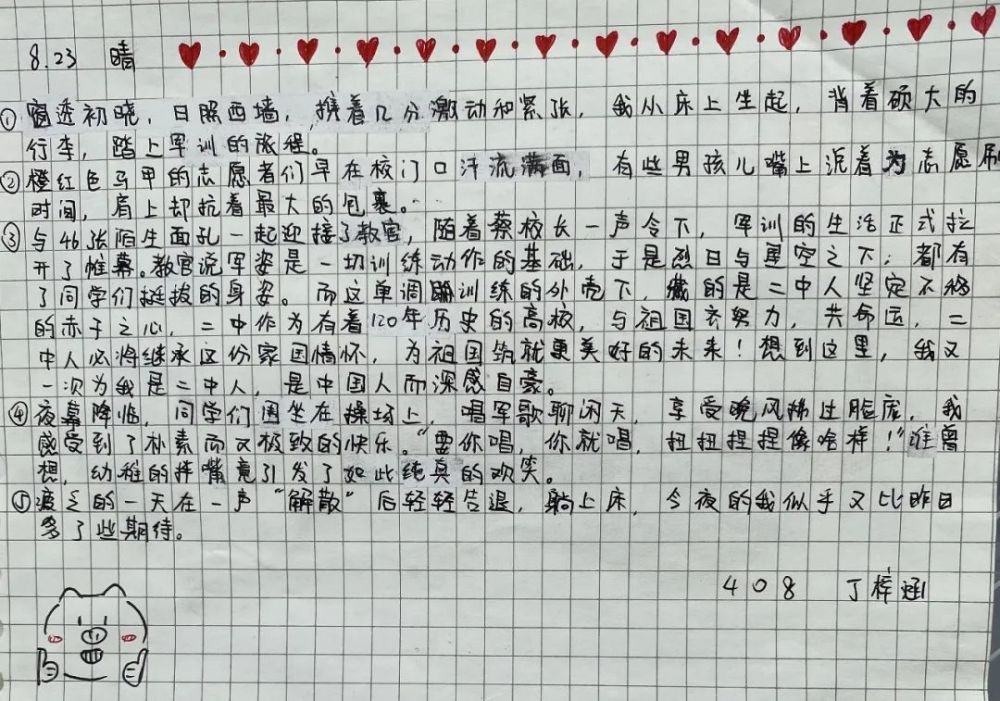 8.23 晴
①窗透初晓，日照西墙，携着几分激动和紧张，我从床上坐起，背着硕大的
行李，踏上军训的旅程。
②橙红色马甲的志愿者们早在校门口汗流满面，有些男孩儿嘴上说着为志愿刷
时间，肩上却抗着最大的包裹。
③与46张陌生面孔一起迎接了教官，随着蔡校长一声令下，军训的生活正式拉
开了帷幕。教官说军姿是一切训练动作的基础，于是烈日与星空之下，都有
了同学们挺拔的身姿。而这单调训练的外壳下，藏的是二中人坚定不移
的赤子之心，二中作为有着120年历史的高校，与祖国齐努力，共命运，二
中人必将继承这份家国情怀，为祖国筑就更美好的未来！想到这里，我又
一次为我是二中人，是中国人而深感自豪。
④夜幕降临，同学们围坐在操场上，唱军歌聊闲天，享受晚风拂过脸庞，我
感受到了朴素而又极致的快乐。“要你唱，你就唱，扭扭捏捏像啥样！”谁曾
想，幼稚的拌嘴竟引发了如此纯真的欢笑。
⑤疲乏的一天在一声“解散”后轻轻告退，躺上床，今夜的我似乎又比昨日
多了些期待。
408 丁梓涵